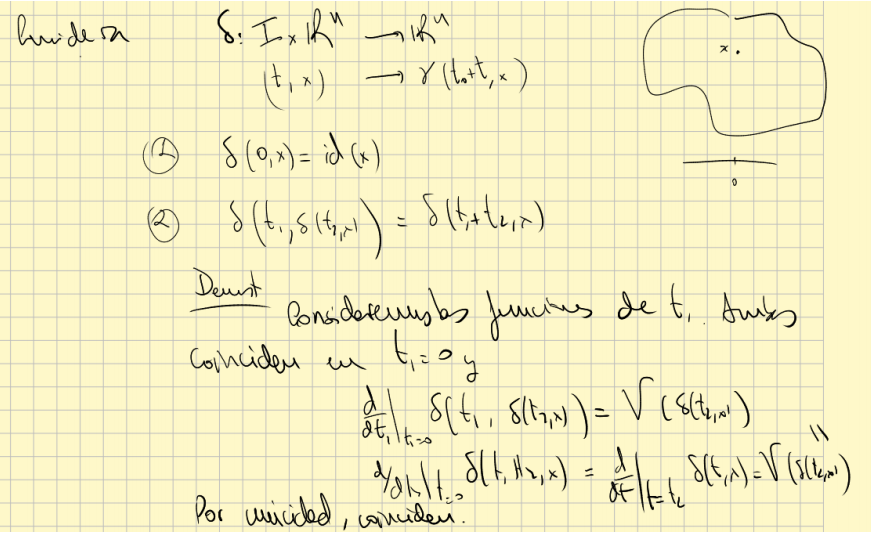 δ: I × ℝⁿ → ℝⁿ
(t, x) → γ(t₀+t, x)
x
① δ(0,x) = id(x)
0
② δ(t₁, δ(t₂,x)) = δ(t₁+t₂,x)
Demst
Consideremos las funciones de t₁. Ambas
coinciden en t₁=0 y
d/dt₁|t₁=0 δ(t₁, δ(t₂,x)) = V(δ(t₂,x))
d/dt₁|t₁=0 δ(t₁+t₂,x) = d/dt|t=t₂ δ(t,x) = V(δ(t₂,x))
Por unicidad, coinciden.